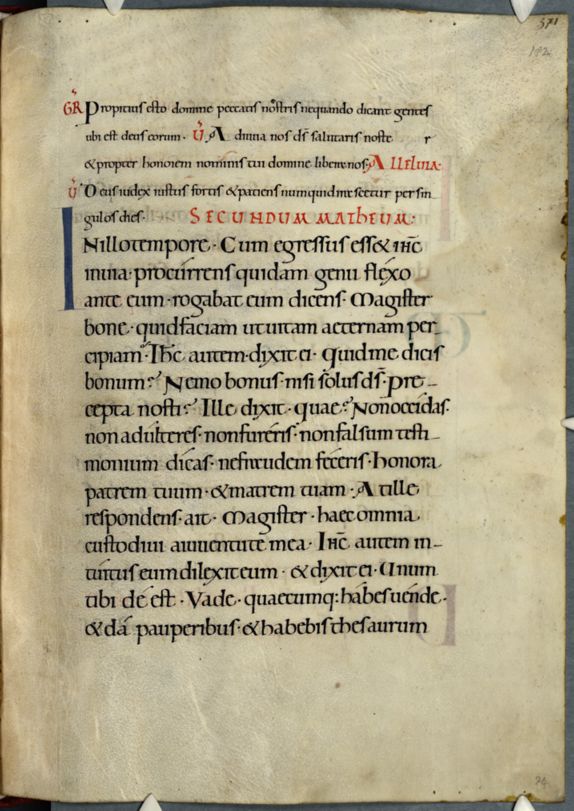 371
182
GR Propitius esto domine peccatis nostris nequando dicant gentes
ubi est deus eorum · V Adiuva nos ds salutaris noster
& propter honorem nominis tui domine libera nos · ALLELUIA·
V Deus iudex iustus fortis & patiens numquid irascetur per sin
gulos dies · SECUNDUM MATHEUM·
INillo tempore · Cum egressus ess& ihc
inuia · procurrens quidam genu flexo
ante eum · rogabat eum dicens · Magister
bone · quid faciam ut uitam aeternam per-
cipiam · Ihc autem · dixit ei · quid me dicis
bonum? Nemo bonus · nisi solus ds · pre-
cepta nosti? Ille dixit · quae? Non occidas ·
non adulteres · non fureris · non falsum testi-
monium dicas · ne fraudem feceris · honora
patrem tuum · & matrem tuam · At ille
respondens · ait · Magister · haec omnia
custodiui a iuuentute mea · Ihc autem in-
tuitus eum dilexit eum · & dixit ei · Unum
tibi deest · Vade · quaecumq: habes uende ·
& da pauperibus · & habebis thesaurum
24